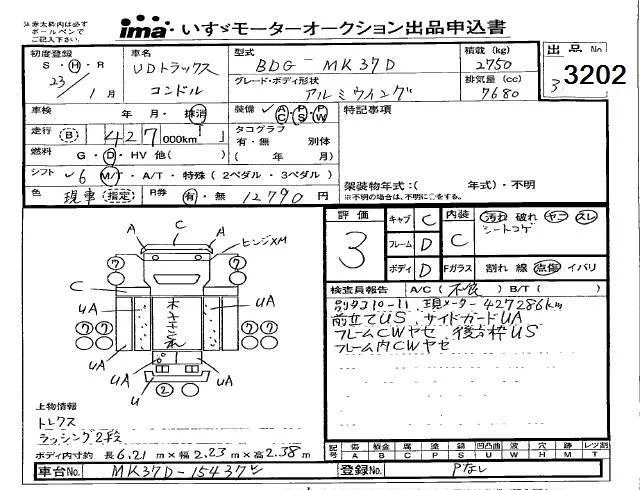 注意太枠内は必ず
ボールペンで
ご記入下さい。
ima いすゞモーターオークション出品申込書
初度登録
S・H・R
23年1月
車名
UDトラックス
コンドル
型式
BDG-MK37D
グレード・ボディ形状
アルミウイング
積載(kg)
2750
排気量(cc)
7680
出品No
3202
3
車検 年 月・抹消
装備 AC・PS・PW
特記事項
走行 (B) 427,000km
タコグラフ
有・無 別体
( 年 月)
燃料 G・D・HV 他( )
シフト 6 M/T・A/T・特殊(2ペダル・3ペダル)
架装物年式:( 年式)・不明
※不明の場合は、不明に○をする。
色 現車 (指定) R券 有・無 12790円
評価
3
キャブ C
フレーム D
ボディ D
内装 C
汚れ 破れ ヤニ スレ
シートコゲ
Fガラス 割れ 線 点傷 イバリ
検査員報告 A/C(不良) B/T( )
別タコ10-11 現メーター427286km
前立てUS サイドガードUA
フレームCWヤセ 後方枠US
フレーム内CWヤセ
A C A
ヒンジXM
⑦ ⑦
C
UA UA
木キサミ
⑦ ⑦
UA UA
UA UA
U
②
上物情報
トレクス
ラッシング2段
ボディ内寸約 長6.21m×幅2.23m×高2.38m
記号 傷 板金 腐 塗 錆 凹凸曲 波 穴 跡 レツ割
A C P S U W H M T
車台No. MK37D-15437
登録No. Pなし